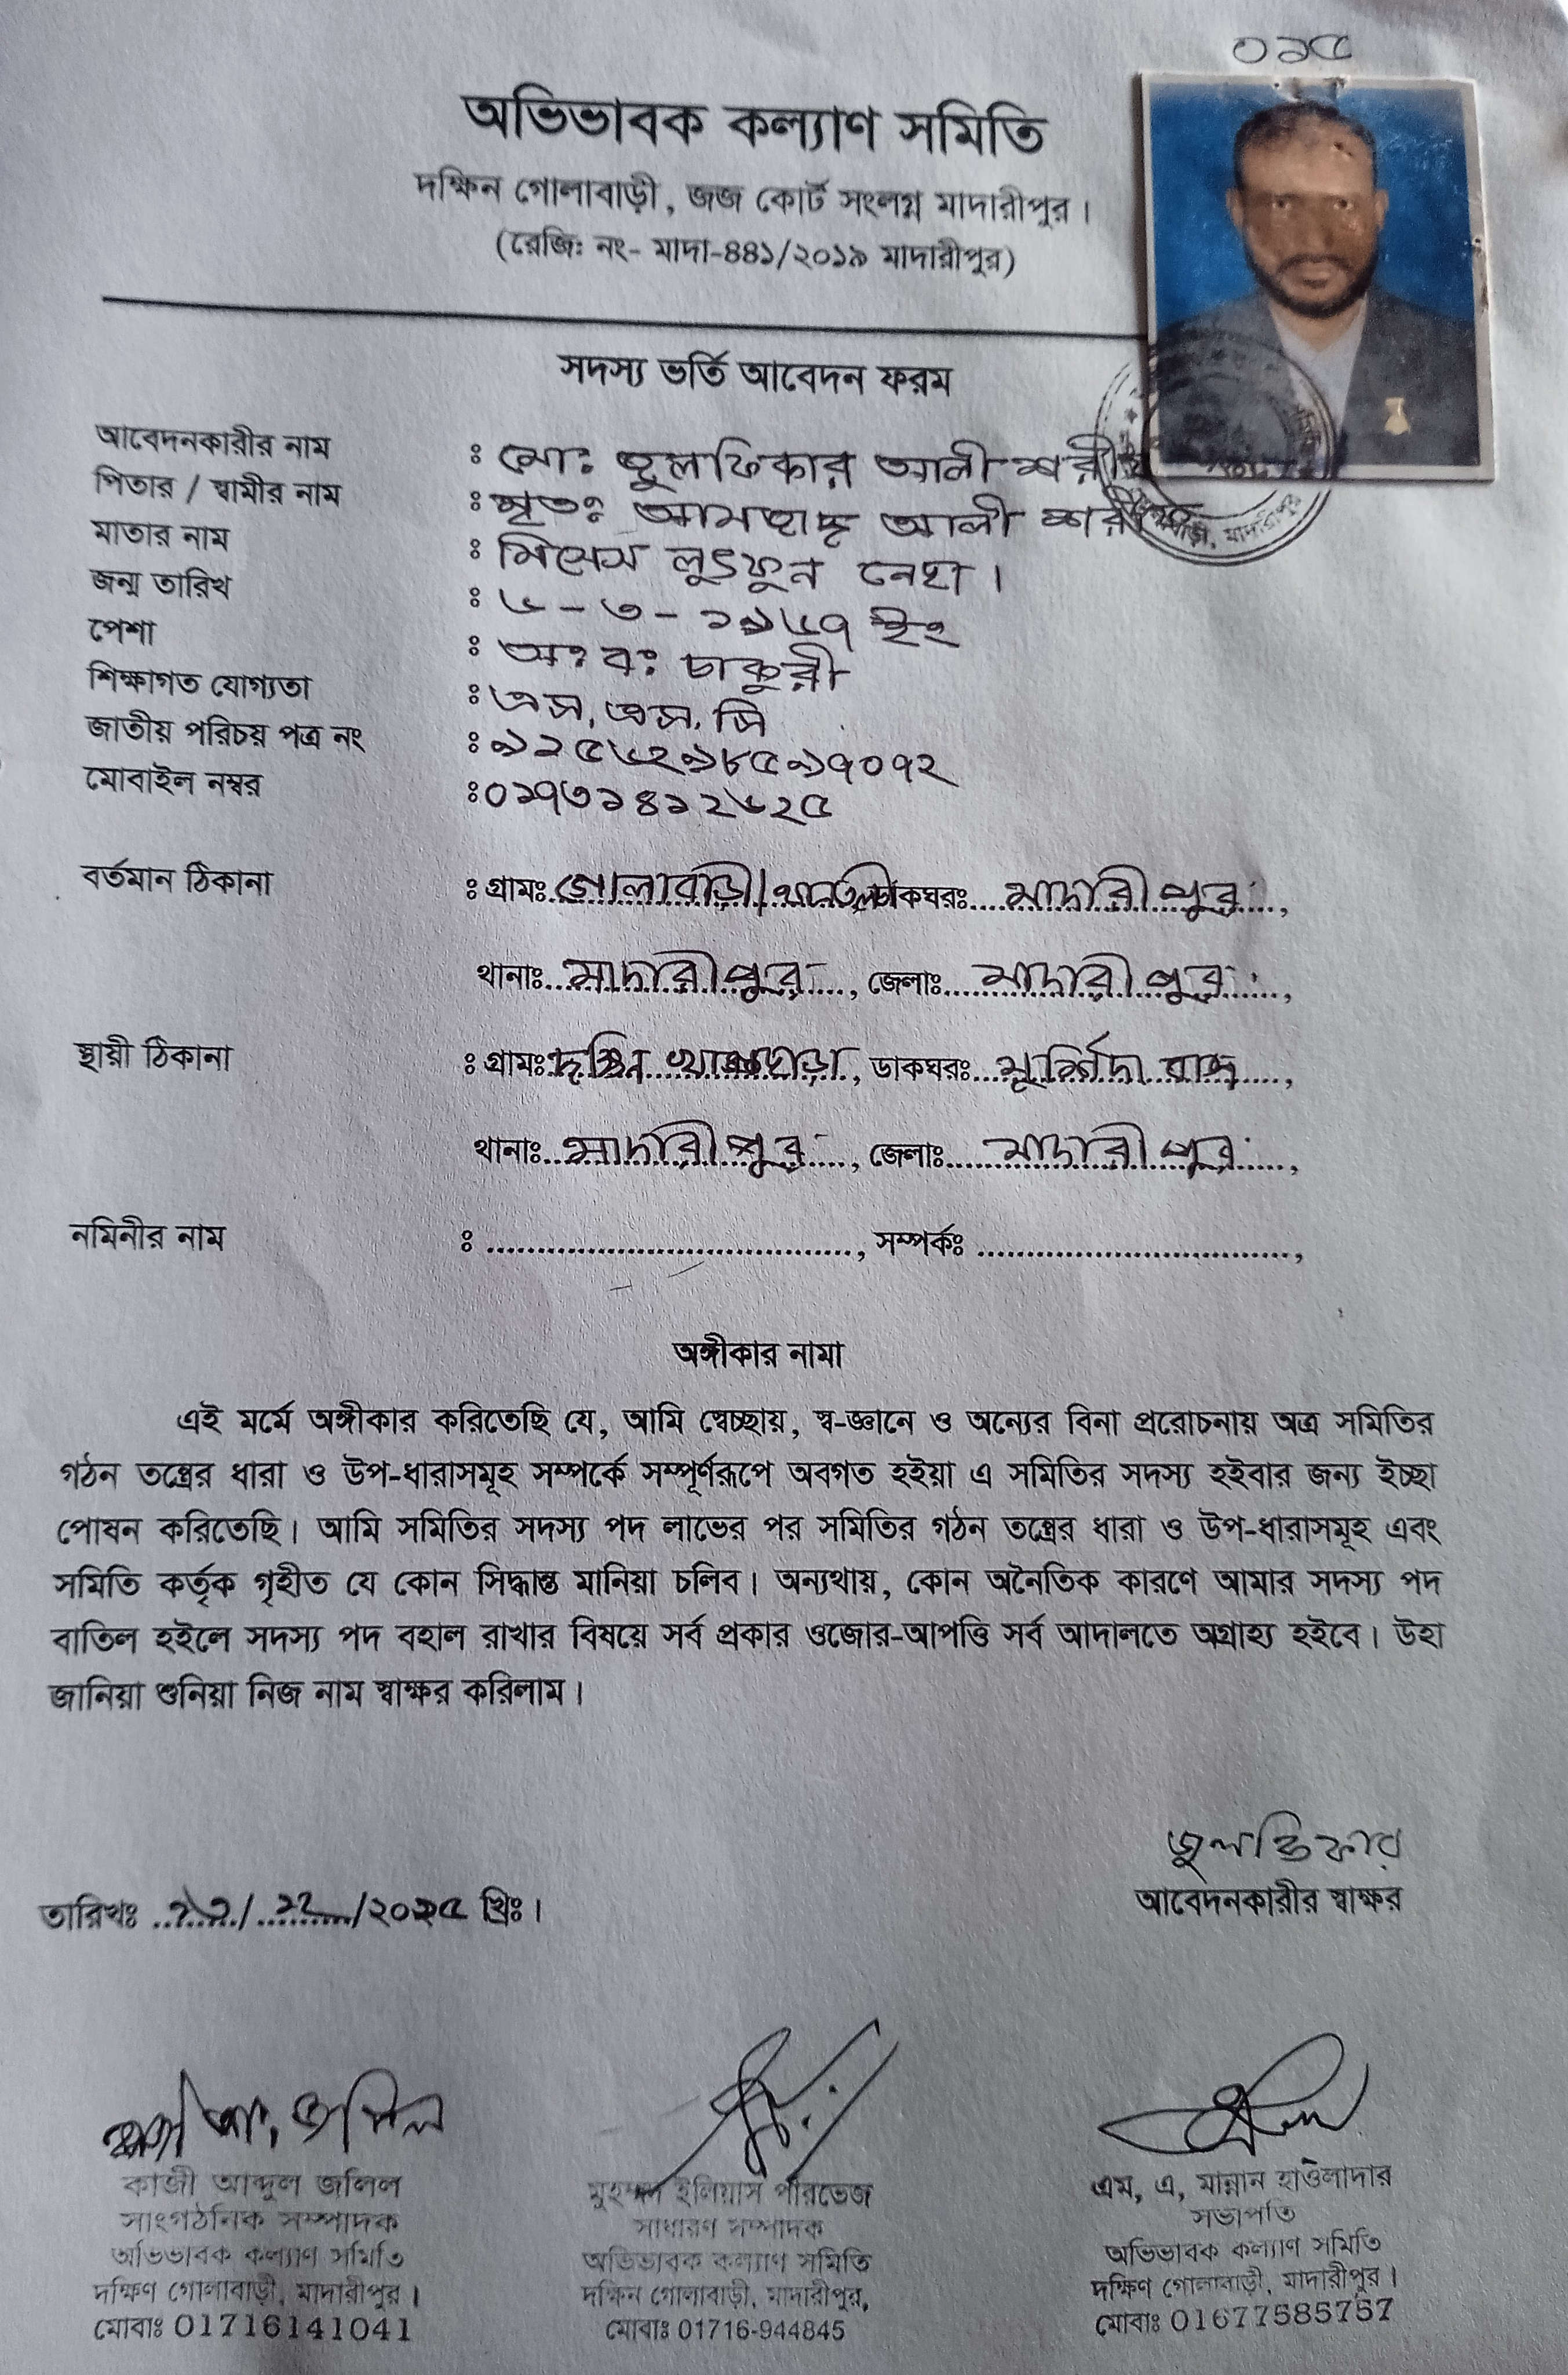 ০১৫
অভিভাবক কল্যাণ সমিতি
দক্ষিন গোলাবাড়ী, জজ কোর্ট সংলগ্ন মাদারীপুর।
(রেজিঃ নং- মাদা-৪৪১/২০১৯ মাদারীপুর)
সদস্য ভর্তি আবেদন ফরম
আবেদনকারীর নাম : মোঃ জুলফিকার আলী শরীফ
পিতার / স্বামীর নাম : মৃতঃ আলী শরীফ
মাতার নাম : মিসেস লুৎফুন নেছা।
জন্ম তারিখ : ৬-৩-১৯৬৭ ইং
পেশা : অঃ বঃ চাকুরী
শিক্ষাগত যোগ্যতা : এস, এস, সি
জাতীয় পরিচয় পত্র নং : ৯১৫৬২৯৮৫৯৭০৭২
মোবাইল নম্বর : ০১৭৩১৪১২৬২৫
বর্তমান ঠিকানা : গ্রামঃ গোলাবাড়ী ডাকঘরঃ মাদারীপুর,
থানাঃ মাদারীপুর, জেলাঃ মাদারীপুর,
স্থায়ী ঠিকানা : গ্রামঃ দক্ষিন ডাকঘরঃ
থানাঃ মাদারীপুর, জেলাঃ মাদারীপুর,
নমিনীর নাম : ...................................., সম্পর্কঃ ..............................,
অঙ্গীকার নামা
এই মর্মে অঙ্গীকার করিতেছি যে, আমি স্বেচ্ছায়, স্ব-জ্ঞানে ও অন্যের বিনা প্ররোচনায় অত্র সমিতির
গঠন তন্ত্রের ধারা ও উপ-ধারাসমূহ সম্পর্কে সম্পূর্ণরূপে অবগত হইয়া এ সমিতির সদস্য হইবার জন্য ইচ্ছা
পোষন করিতেছি। আমি সমিতির সদস্য পদ লাভের পর সমিতির গঠন তন্ত্রের ধারা ও উপ-ধারাসমূহ এবং
সমিতি কর্তৃক গৃহীত যে কোন সিদ্ধান্ত মানিয়া চলিব। অন্যথায়, কোন অনৈতিক কারণে আমার সদস্য পদ
বাতিল হইলে সদস্য পদ বহাল রাখার বিষয়ে সর্ব প্রকার ওজোর-আপত্তি সর্ব আদালতে অগ্রাহ্য হইবে। উহা
জানিয়া শুনিয়া নিজ নাম স্বাক্ষর করিলাম।
জুলফিকার
আবেদনকারীর স্বাক্ষর
তারিখঃ /১২/২০২৫ খ্রিঃ।
কাজী আব্দুল জলিল
সাংগঠনিক সম্পাদক
অভিভাবক কল্যাণ সমিতি
দক্ষিণ গোলাবাড়ী, মাদারীপুর।
মোবাঃ 01716141041
মুহম্মদ ইলিয়াস পারভেজ
সাধারণ সম্পাদক
অভিভাবক কল্যাণ সমিতি
দক্ষিন গোলাবাড়ী, মাদারীপুর,
মোবাঃ 01716-944845
এম, এ, মান্নান হাওলাদার
সভাপতি
অভিভাবক কল্যাণ সমিতি
দক্ষিণ গোলাবাড়ী, মাদারীপুর।
মোবাঃ 01677585757